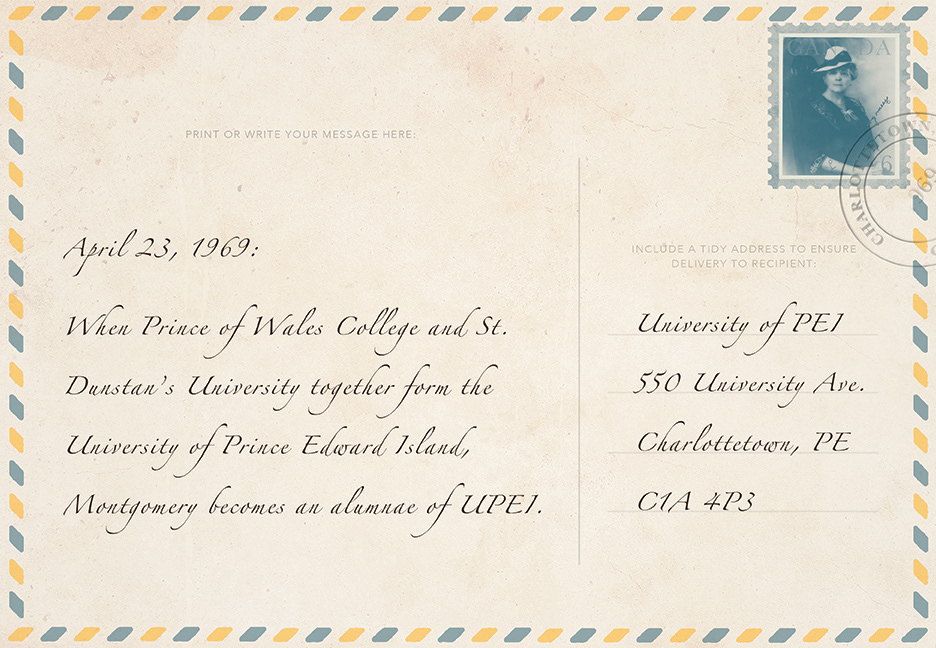 CANADA
6
CHARLOTTETOWN
PRINT OR WRITE YOUR MESSAGE HERE:
April 23, 1969:
When Prince of Wales College and St.
Dunstan's University together form the
University of Prince Edward Island,
Montgomery becomes an alumnae of UPEI.
INCLUDE A TIDY ADDRESS TO ENSURE
DELIVERY TO RECIPIENT:
University of PEI
550 University Ave.
Charlottetown, PE
C1A 4P3